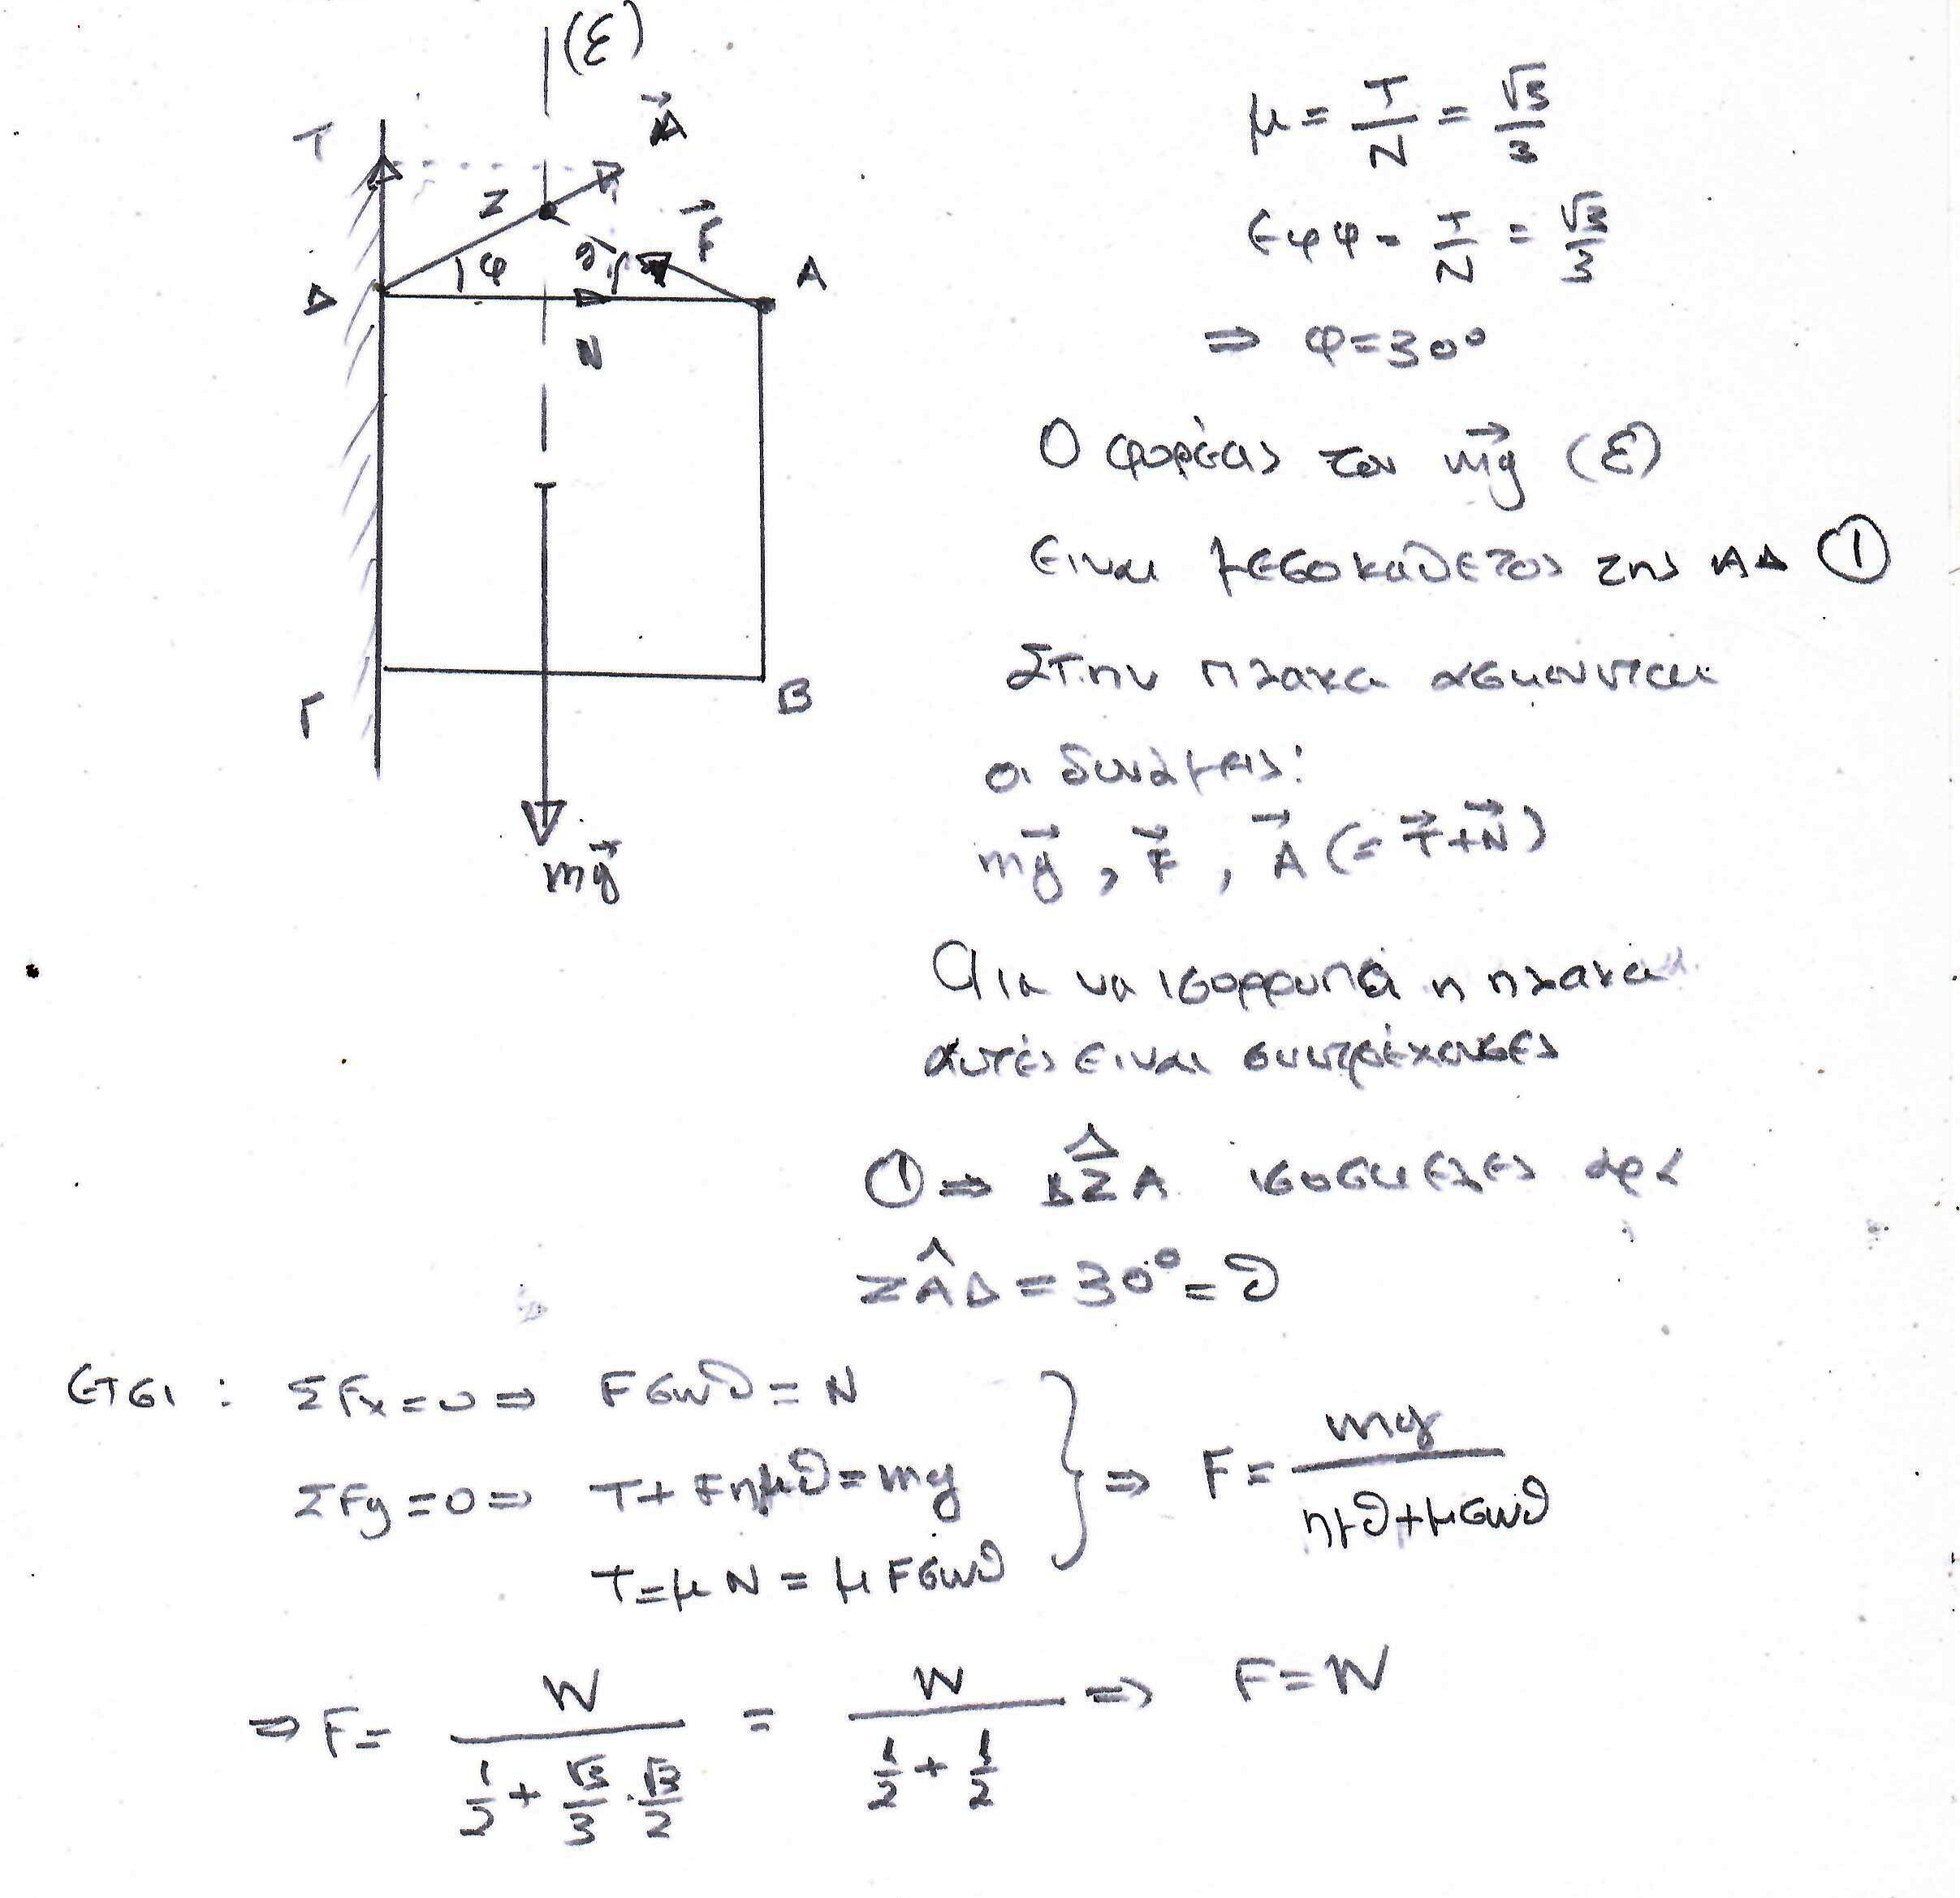 (ε)
T
A⃗
Z
F⃗
φ
θ
Δ
A
N
Γ
B
mg⃗
μ = T/N = √3/3
εφφ = T/N = √3/3
⇒ φ=30°
Ο φορέας του mg⃗ (ε)
ειναι μεσοκαθετος της ΑΔ ①
Στην πλακα ασκουνται
οι δυνάμεις:
mg⃗, F⃗, A⃗ (= T⃗+N⃗)
Για να ισορροπεί η πλακα
αυτές ειναι συντρέχουσες
① ⇒ ΔẐA ισοσκελες αρα
ZÂΔ = 30° = θ
ετσι : ΣFx=0 ⇒ Fσυνθ = N
ΣFy=0 ⇒ T+Fημθ=mg
T=μN = μFσυνθ
} ⇒ F = mg/(ημθ+μσυνθ)
⇒ F= W/(1/2 + √3/3 · √3/2) = W/(1/2 + 1/2) ⇒ F=W